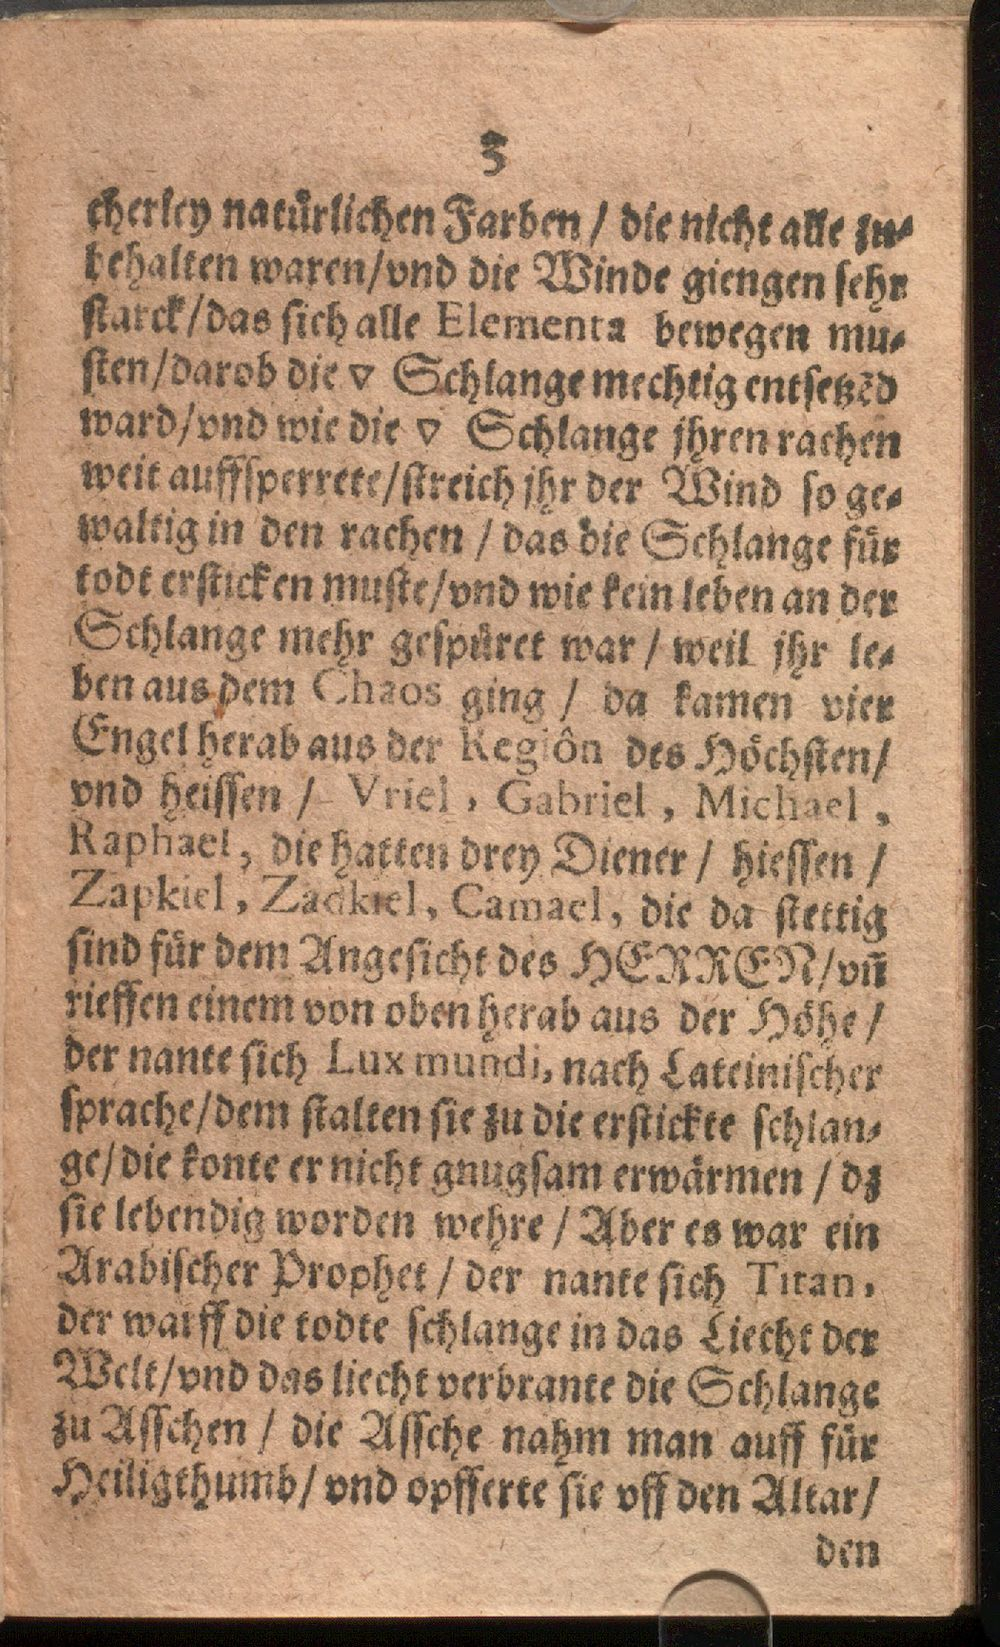 3
cherley natürlichen Farben / die nicht alle zu-
behalten waren/vnd die Winde giengen sehr
starck/das sich alle Elementa bewegen mu-
sten/darob die ▽ Schlange mechtig entsetzẽd
ward/vnd wie die ▽ Schlange jhren rachen
weit auffsperrete/streich jhr der Wind so ge-
waltig in den rachen / das die Schlange für
todt ersticken muste/vnd wie kein leben an der
Schlange mehr gespüret war / weil jhr le-
ben aus dem Chaos ging / da kamen vier
Engel herab aus der Regiôn des Höchsten/
vnd heissen / Vriel, Gabriel, Michael,
Raphael, die hatten drey Diener / hiessen /
Zapkiel, Zadkiel, Camael, die da stettig
sind für dem Angesicht des HERREN/vñ
rieffen einem von oben herab aus der Höhe /
der nante sich Lux mundi, nach Lateinischer
sprache/dem stalten sie zu die erstickte schlan-
ge/die konte er nicht gnugsam erwärmen / dz
sie lebendig worden wehre / Aber es war ein
Arabischer Prophet / der nante sich Titan,
der warff die todte schlange in das Liecht der
Welt/vnd das liecht verbrante die Schlange
zu Asschen / die Assche nahm man auff für
Heiligthumb/ vnd opfferte sie vff den Altar/
den